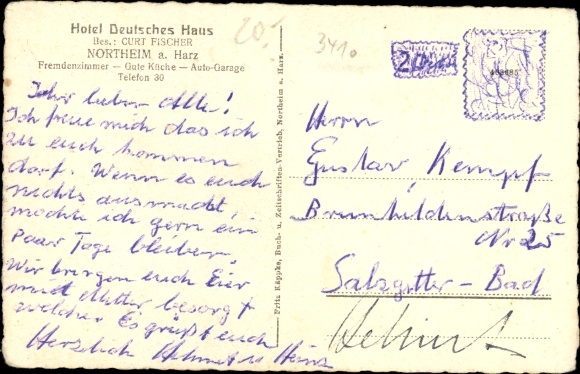 Hotel Deutsches Haus
Bes.: CURT FISCHER
NORTHEIM a. Harz
Fremdenzimmer — Gute Küche — Auto-Garage
Telefon 30
20.-
3410
Ihr lieben Alle!
Ich freue mich das ich
zu euch kommen
darf. Wenn es euch
nichts ausmacht,
möchte ich gern ein
paar Tage bleiben.
Wir bringen euch Eier
mit Mutter besorgt
welche Es grüßt euch
Herzlich Helmut u Hans
Fritz Käppke, Buch- u. Zeitschriften-Vertrieb, Northeim a. Harz.
Herrn
Gustav Kempf
Brunhildenstraße
Nr 25
Salzgitter-Bad
Helmut